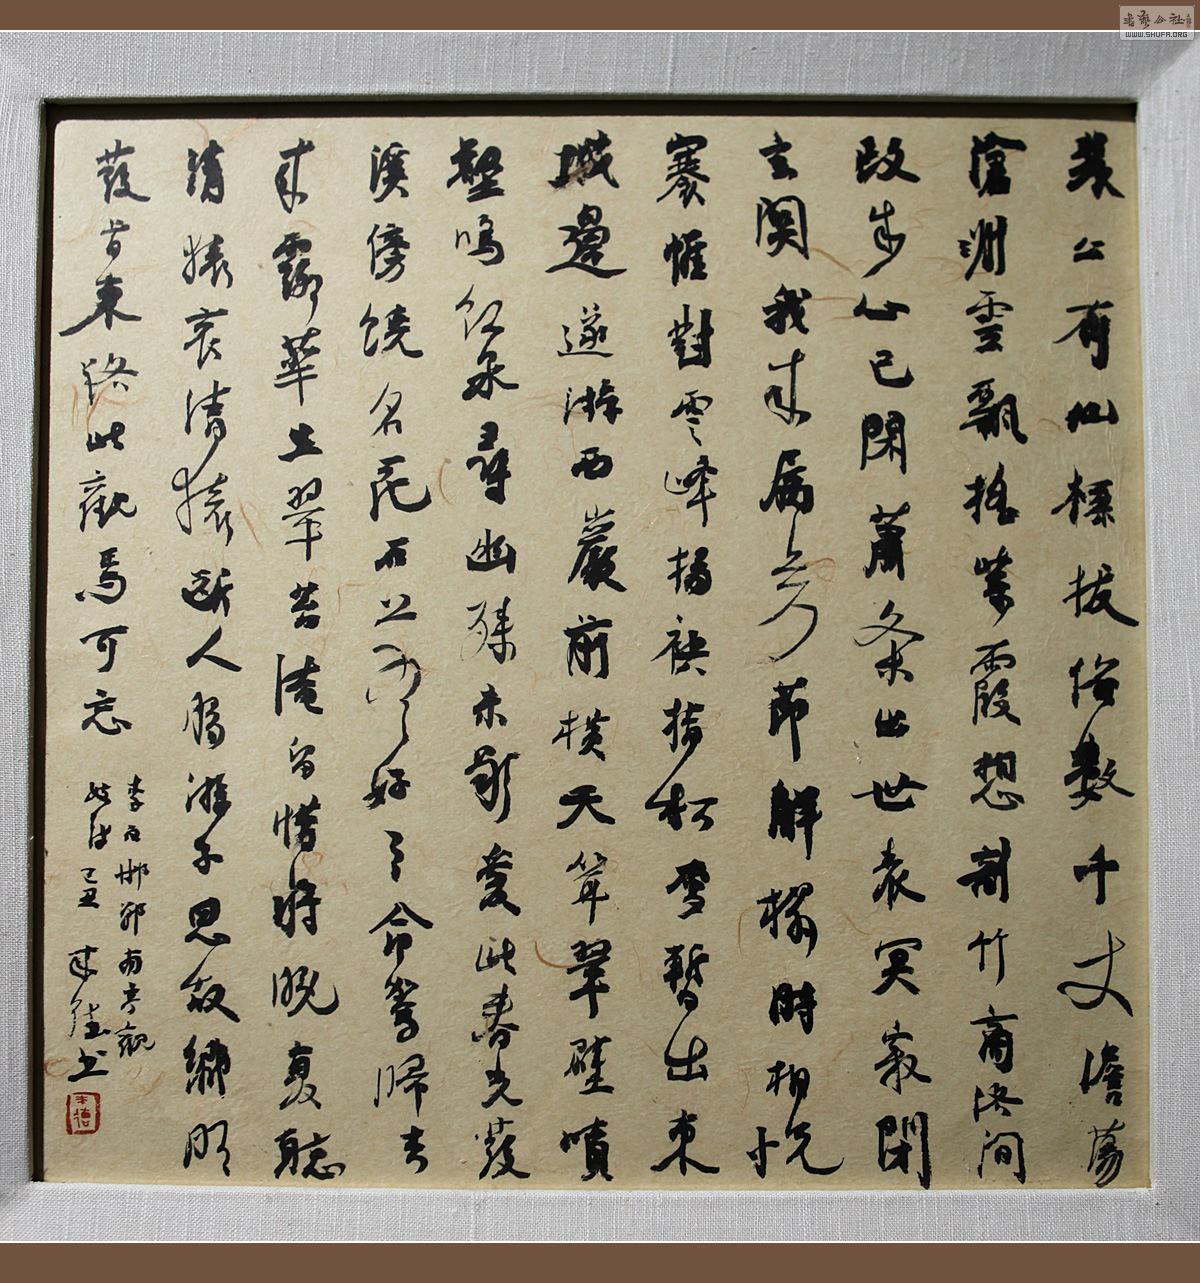 裴公有仙標拔俗数千丈澹蕩
滄洲雲飄摇紫霞想剖竹商洛间
政成心已閑蕭条出世表冥寂閉
玄関我来属芳節解榻時相悦
褰帷對雲峰揚袂指松雪暫出東
城邊遂游西巖前横天耸翠壁噴
壑鳴红泉尋幽殊未歇愛此春光發
溪傍饒名花石上有好月命駕歸去
来露華生翠苔淹留惜將晚复聽
清猿哀清猿断人腸游子思故鄉明
發昔東路此觀焉可忘
李白邯鄲南亭觀
妓诗 己丑 书
书艺公社
WWW.SHUFA.ORG